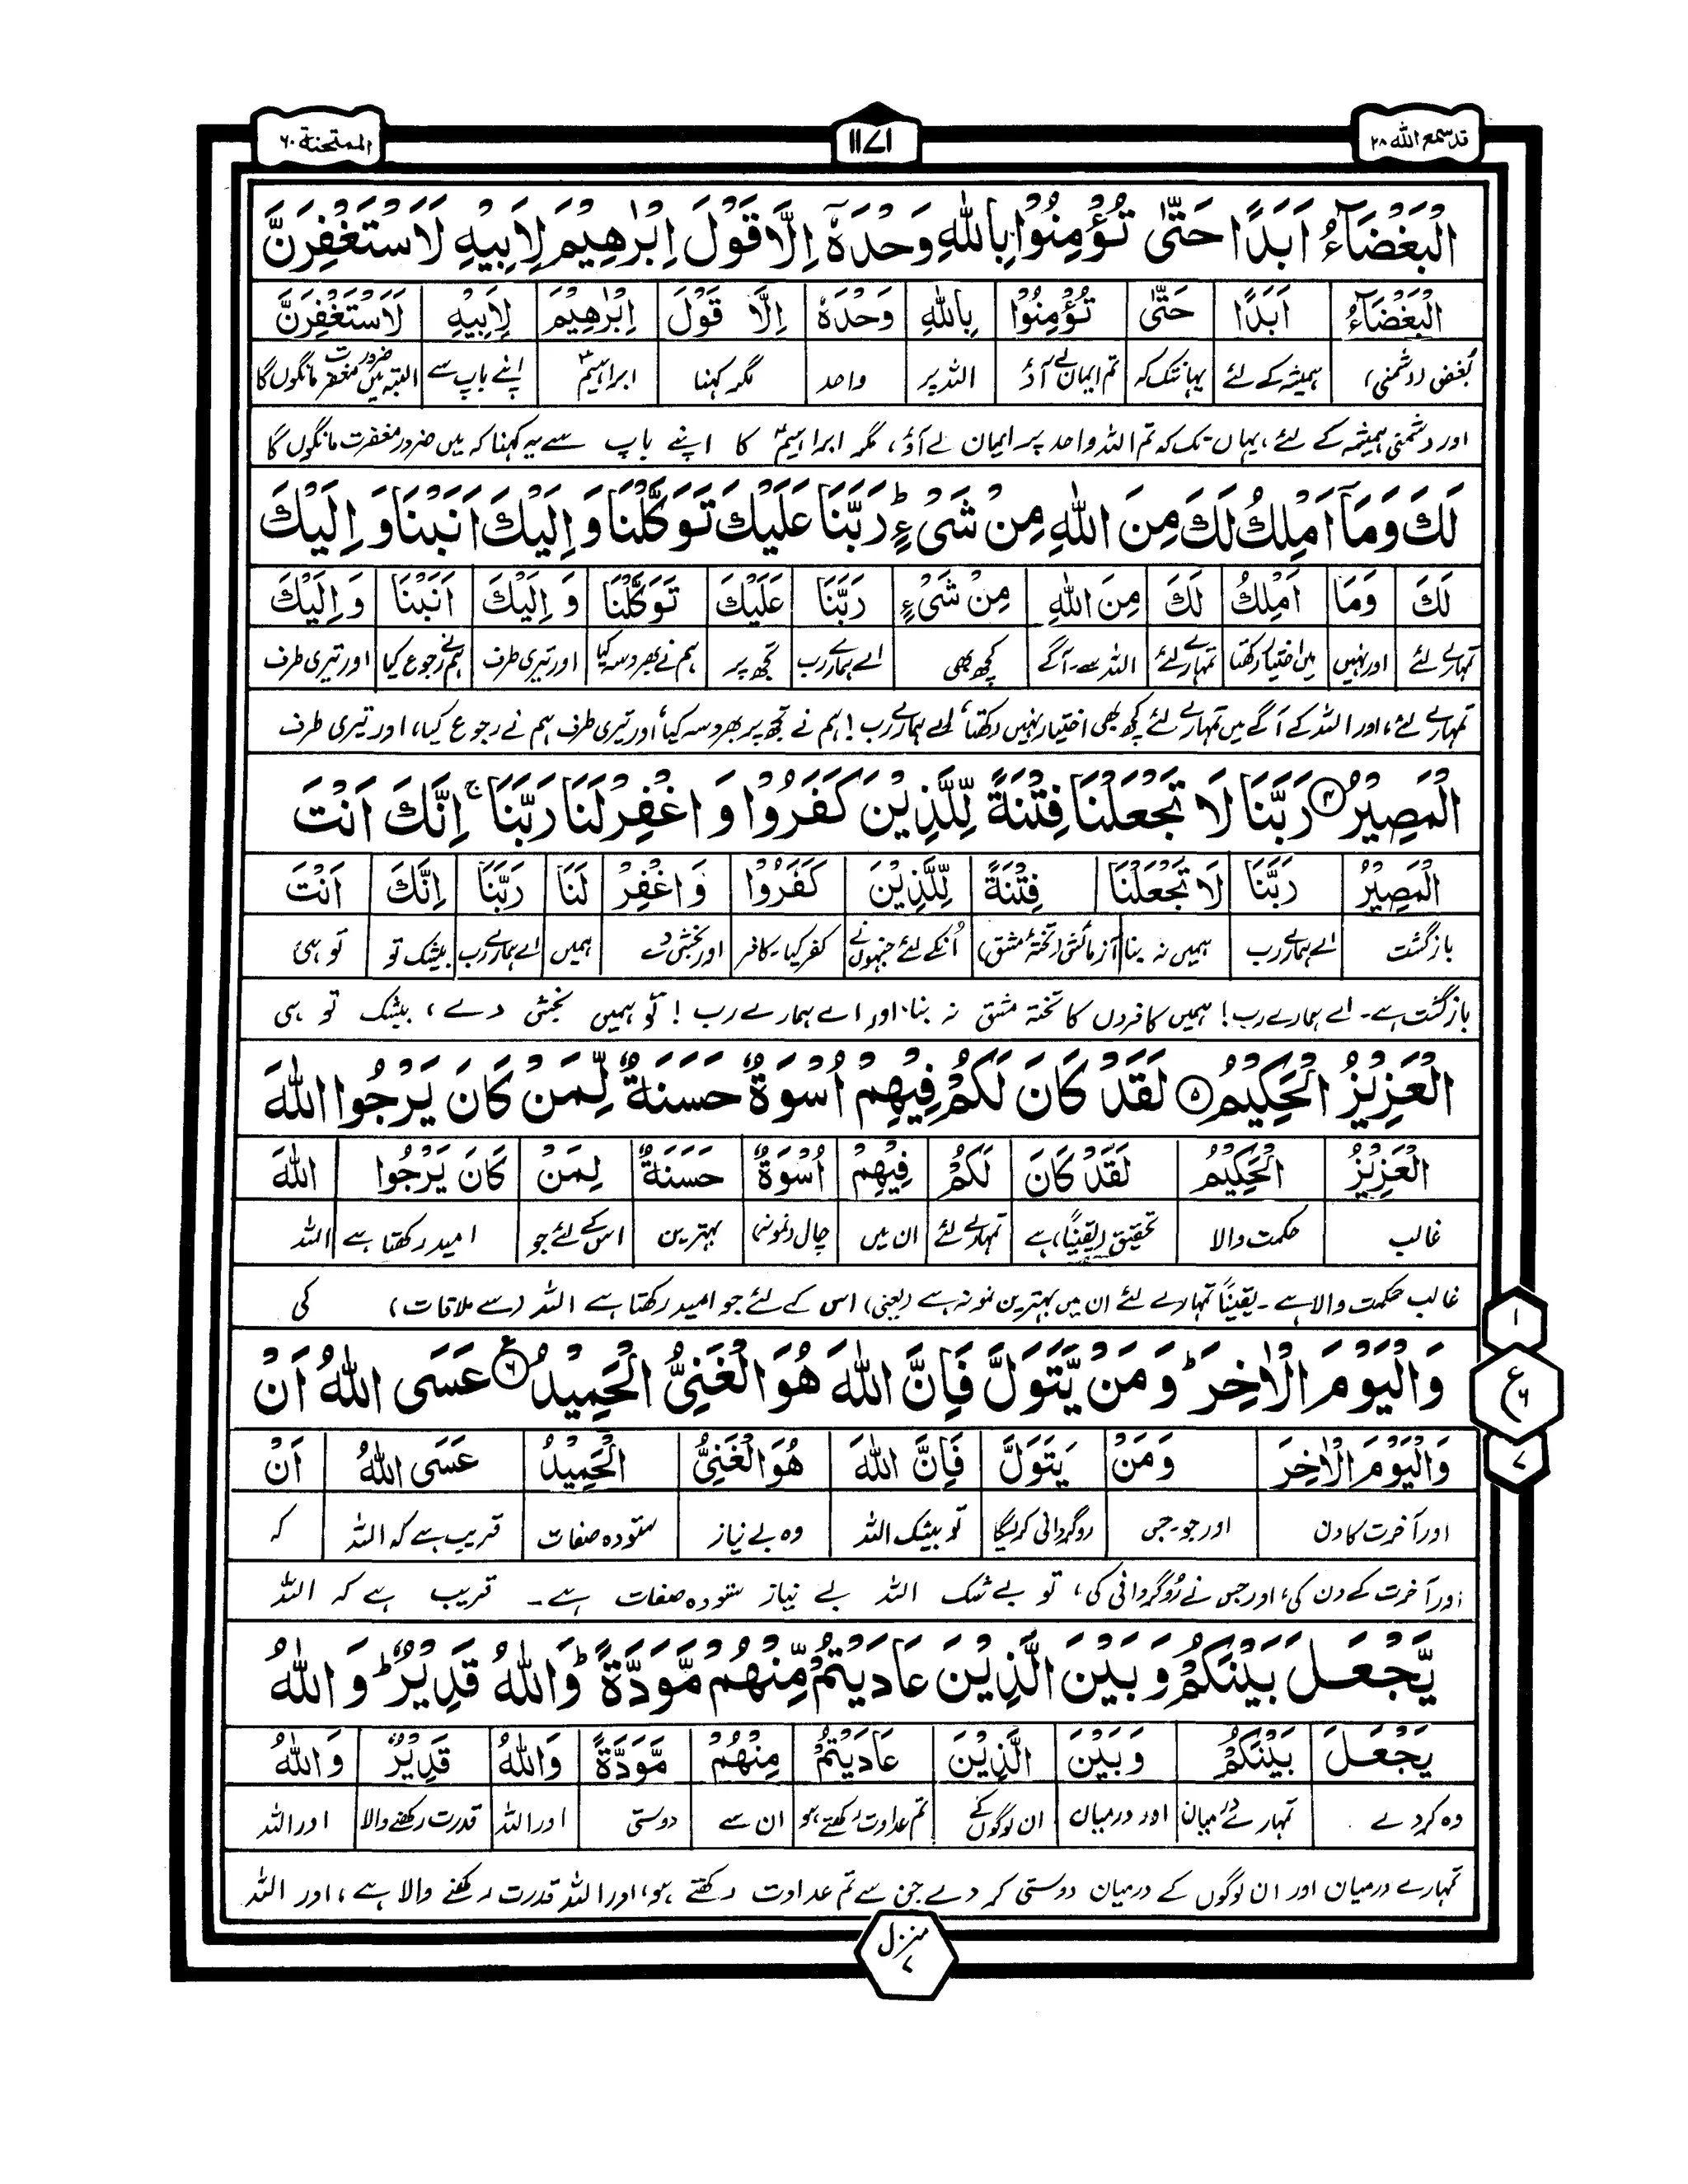 قد سمع الله ۲۸
۱۱۷۱
الممتحنة ۶۰
الْبَغْضَآءُ اَبَدًا حَتّٰى تُؤْمِنُوْا بِاللّٰهِ وَحْدَهٗٓ اِلَّا قَوْلَ اِبْرٰهِيْمَ لِاَبِيْهِ لَاَسْتَغْفِرَنَّ
الْبَغْضَآءُ اَبَدًا حَتّٰى تُؤْمِنُوْا بِاللّٰهِ وَحْدَهٗ اِلَّا قَوْلَ اِبْرٰهِيْمَ لِاَبِيْهِ لَاَسْتَغْفِرَنَّ
بُغض (دشمنی) ہمیشہ کے لئے یہانتک کہ تم ایمان لے آؤ اللہ پر واحد مگر کہنا ابراہیمؑ اپنے باپ سے البتہ میں ضرور مغفرت مانگوں گا
اور دشمنی ہمیشہ کے لئے، یہاں تک کہ تم اللہ واحد پر ایمان لے آؤ، مگر ابراہیمؑ کا اپنے باپ سے یہ کہنا کہ میں ضرور مغفرت مانگوں گا
لَكَ وَمَآ اَمْلِكُ لَكَ مِنَ اللّٰهِ مِنْ شَیْءٍ ؕ رَبَّنَا عَلَيْكَ تَوَكَّلْنَا وَ اِلَيْكَ اَنَبْنَا وَ اِلَيْكَ
لَكَ وَمَا اَمْلِكُ لَكَ مِنَ اللّٰهِ مِنْ شَیْءٍ رَبَّنَا عَلَيْكَ تَوَكَّلْنَا وَ اِلَيْكَ اَنَبْنَا وَ اِلَيْكَ
تمہارے لئے اور نہیں میں اختیار رکھتا تمہارے لئے اللہ سے۔آگے کچھ بھی اے ہمارے رب تجھ پر ہم نے بھروسہ کیا اور تیری طرف ہم نے رجوع کیا اور تیری طرف
تمہارے لئے، اور اللہ کے آگے میں تمہارے لئے کچھ بھی اختیار نہیں رکھتا، اے ہمارے رب! ہم نے تجھ پر بھروسہ کیا، اور تیری طرف ہم نے رجوع کیا، اور تیری طرف
الْمَصِيْرُ ۴ رَبَّنَا لَا تَجْعَلْنَا فِتْنَةً لِّلَّذِيْنَ كَفَرُوْا وَ اغْفِرْ لَنَا رَبَّنَا ۚ اِنَّكَ اَنْتَ
الْمَصِيْرُ رَبَّنَا لَا تَجْعَلْنَا فِتْنَةً لِّلَّذِيْنَ كَفَرُوْا وَ اغْفِرْ لَنَا رَبَّنَا اِنَّكَ اَنْتَ
بازگشت اے ہمارے رب ہمیں نہ بنا آزمائش (تختۂ مشق) اُنکے لئے جنہوں نے کفر کیا۔کافر اور بخش دے ہمیں اے ہمارے رب بیشک تو تو ہی
بازگشت ہے۔ اے ہمارے رب! ہمیں کافروں کا تختۂ مشق نہ بنا۔ اور اے ہمارے رب! تو ہمیں بخش دے، بیشک تو ہی
الْعَزِيْزُ الْحَكِيْمُ ۵ لَقَدْ كَانَ لَكُمْ فِيْهِمْ اُسْوَةٌ حَسَنَةٌ لِّمَنْ كَانَ يَرْجُوا اللّٰهَ
الْعَزِيْزُ الْحَكِيْمُ لَقَدْ كَانَ لَكُمْ فِيْهِمْ اُسْوَةٌ حَسَنَةٌ لِمَنْ كَانَ يَرْجُوا اللّٰهَ
غالب حکمت والا تحقیق (یقیناً) ہے تمہارے لئے ان میں چال (نمونہ) بہترین اس کے لئے جو امید رکھتا ہے اللہ
غالب حکمت والا ہے۔ یقیناً تمہارے لئے ان میں بہترین نمونہ ہے (یعنی) اس کے لئے جو امید رکھتا ہے اللہ (سے ملاقات) کی
وَالْيَوْمَ الْاٰخِرَ ؕ وَ مَنْ يَّتَوَلَّ فَاِنَّ اللّٰهَ هُوَ الْغَنِیُّ الْحَمِيْدُ ۶ ع عَسَى اللّٰهُ اَنْ
وَالْيَوْمَ الْاٰخِرَ وَمَنْ يَتَوَلَّ فَاِنَّ اللّٰهَ هُوَ الْغَنِیُّ الْحَمِيْدُ عَسَى اللّٰهُ اَنْ
اور آخرت کا دن اور جو۔جس روگردانی کریگا تو بیشک اللہ وہ بے نیاز ستودہ صفات قریب ہے کہ اللہ کہ
اور آخرت کے دن کی، اور جس نے رُوگردانی کی، تو بے شک اللہ بے نیاز ستودہ صفات ہے۔ قریب ہے کہ اللہ
يَّجْعَلَ بَيْنَكُمْ وَ بَيْنَ الَّذِيْنَ عَادَيْتُمْ مِّنْهُمْ مَّوَدَّةً ؕ وَاللّٰهُ قَدِيْرٌ ؕ وَ اللّٰهُ
يَجْعَلَ بَيْنَكُمْ وَ بَيْنَ الَّذِيْنَ عَادَيْتُمْ مِنْهُمْ مَّوَدَّةً وَاللّٰهُ قَدِيْرٌ وَاللّٰهُ
وہ کردے تمہارے درمیان اور درمیان ان لوگوں کے تم عداوت رکھتے ہو ان سے دوستی اور اللہ قدرت رکھنے والا اور اللہ
تمہارے درمیان اور ان لوگوں کے درمیان دوستی کر دے جن سے تم عداوت رکھتے ہو، اور اللہ قدرت رکھنے والا ہے، اور اللہ
۱
ع ۶
۷
منزل ۷